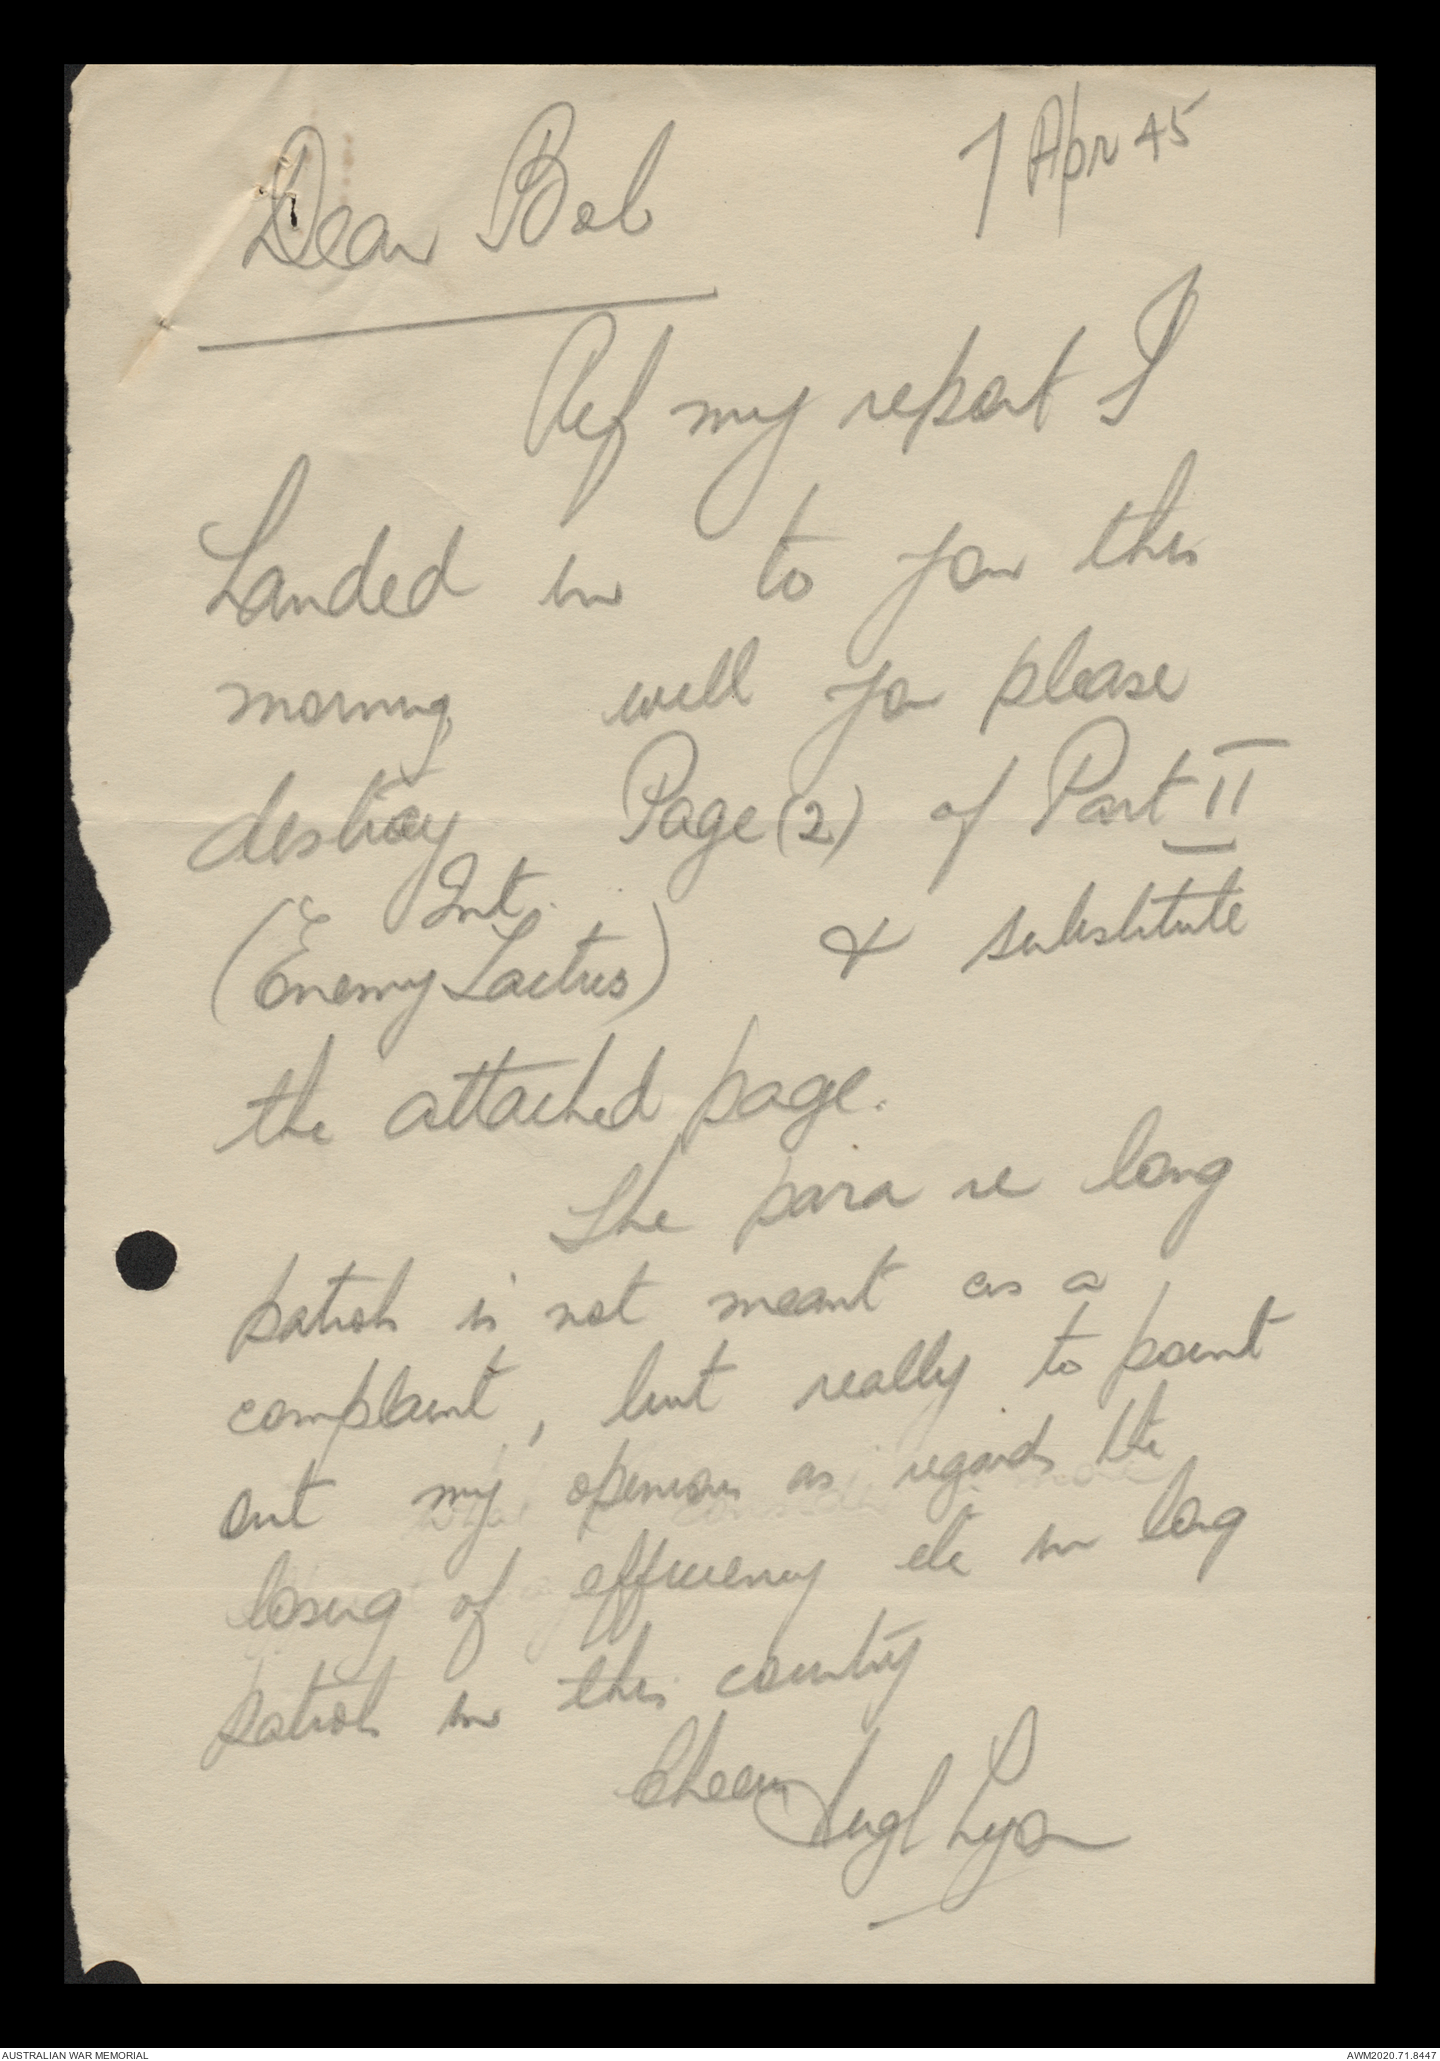 7 Apr 45
Dear Bob
Ref my report I
handed in to you this
morning will you please
destroy Page (2) of Part II
Int.
(Enemy Tactics) & substitute
the attached page.
The para re long
patrols is not meant as a
complaint, but really to point
out my opinion as regards the
losing of efficiency etc in long
patrols in this country
Cheers Hugh Lyon
AUSTRALIAN WAR MEMORIAL
AWM2020.71.8447